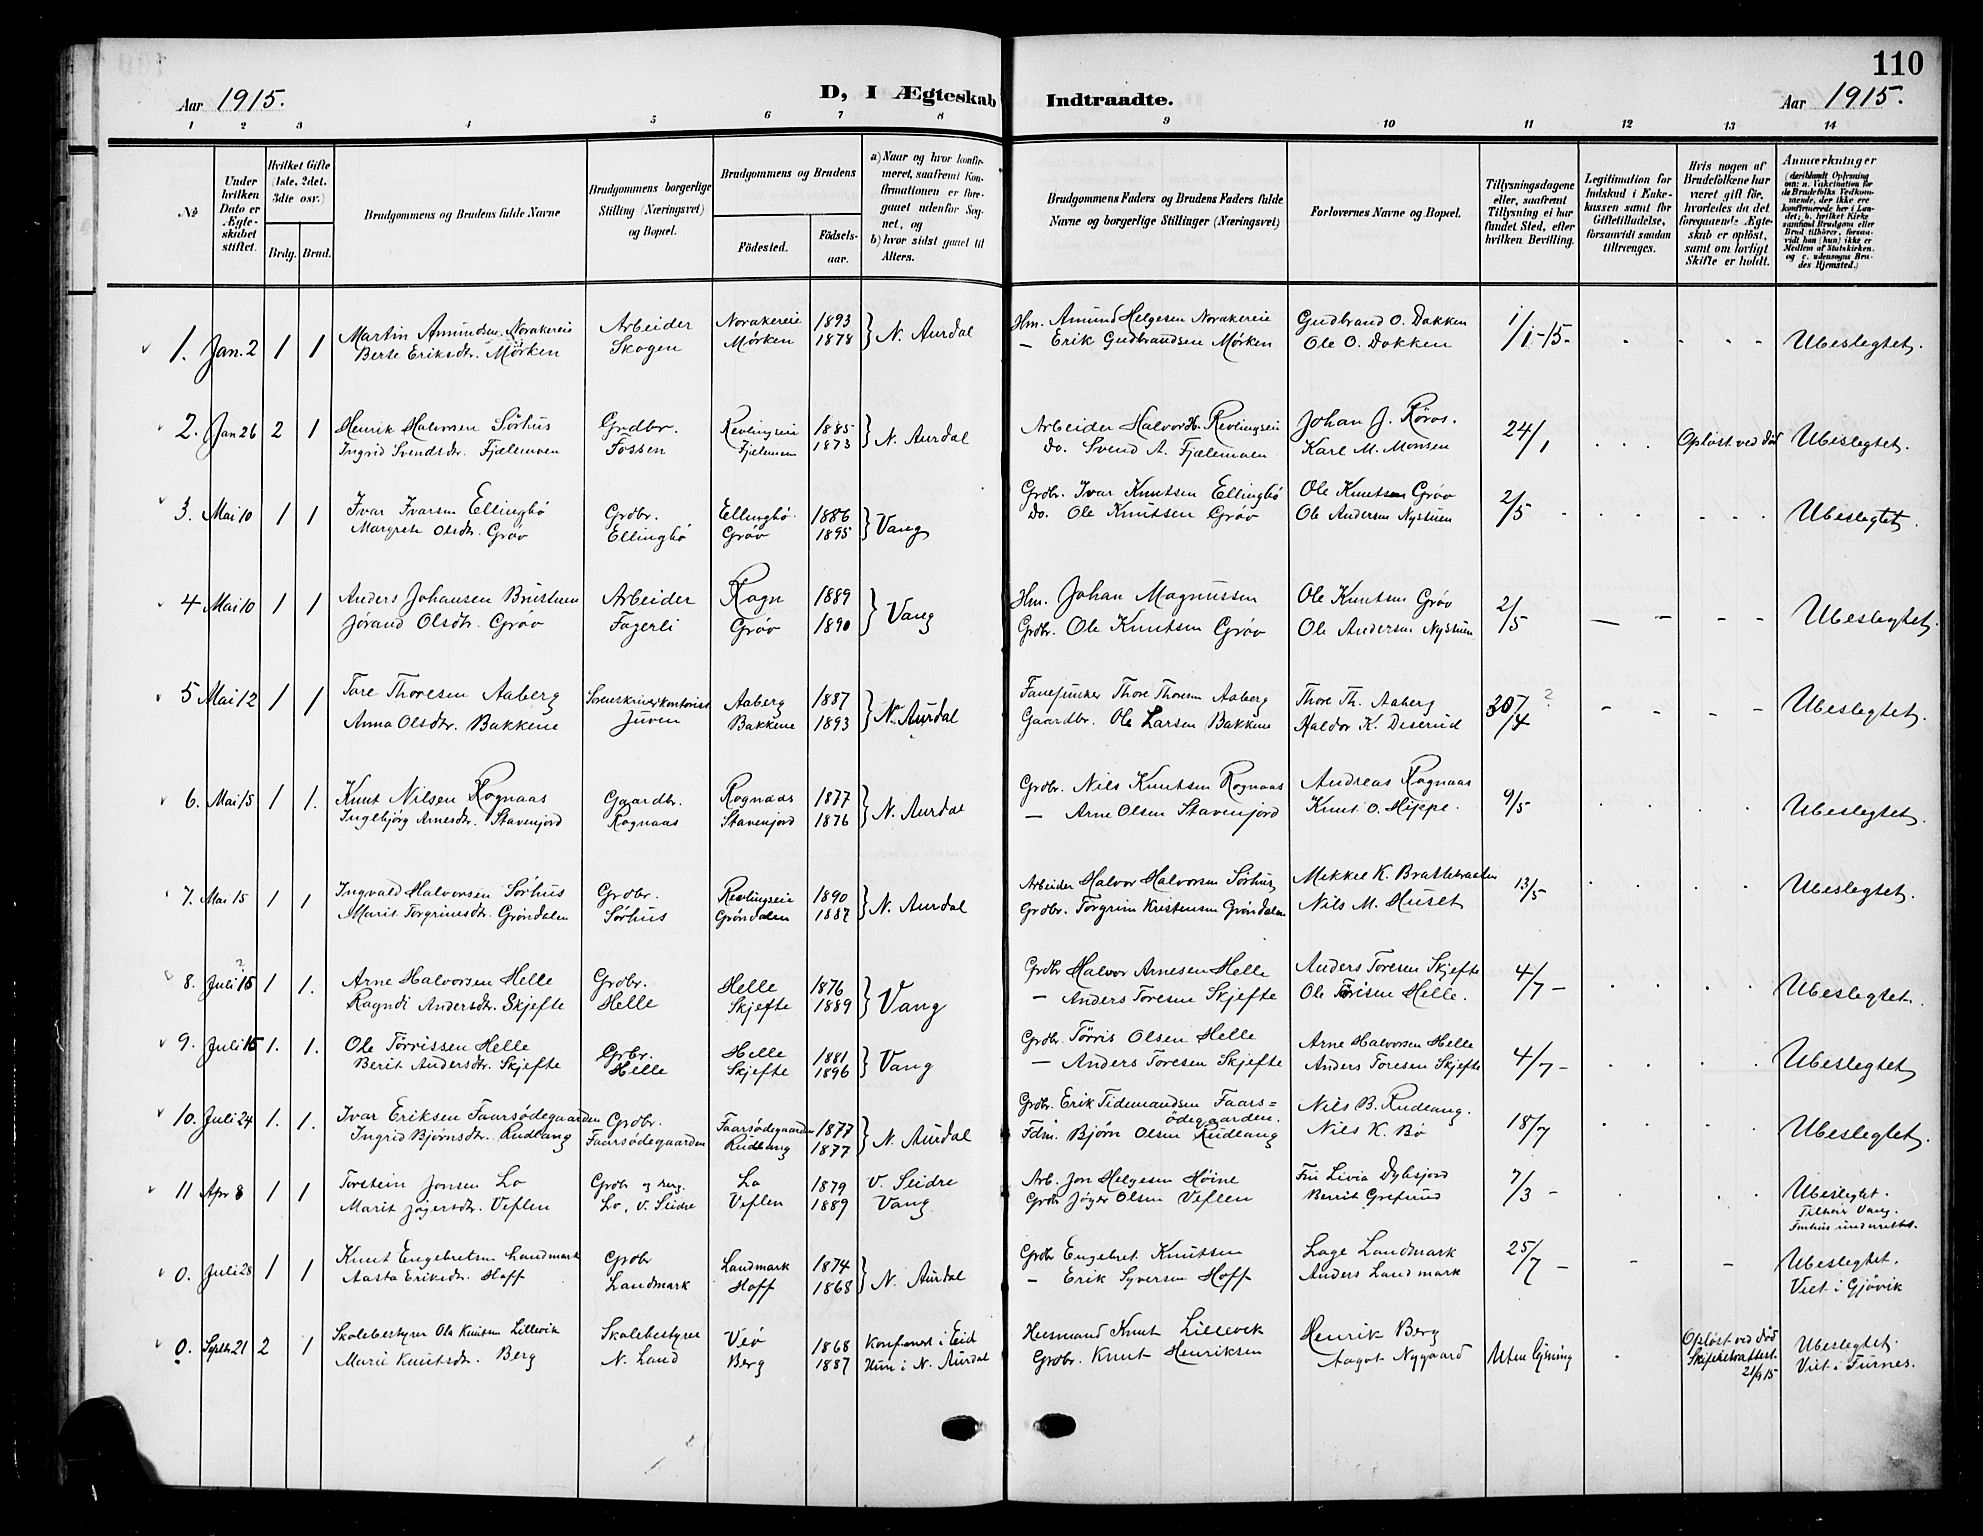 110
Aar 1915.
D, I Ægteskab Indtraadte.
Aar 1915.
1 2 3 4 5 6 7 8 9 10 11 12 13 14
№
Under hvilken Dato er Ægteskabet stiftet.
Hvilket Gifte (1ste, 2det, 3die osv.)
Brdg. Brud.
Brudgommens og Brudens fulde Navne
Brudgommens borgerlige Stilling (Næringsvei) og Bopæl.
Brudgommens og Brudens
Fødested.
Fødselsaar.
a) Naar og hvor konfirmeret, saafremt Konfirmationen er foregaaet udenfor Sognet, og
b) hvor sidst gaaet til Alters.
Brudgommens Faders og Brudens Faders fulde Navne og borgerlige Stillinger (Næringsvei)
Forlovernes Navne og Bopæl.
Tillysningsdagene eller, saafremt Tillysning ei har fundet Sted, efter hvilken Bevilling.
Legitimation for Indskud i Enkekassen samt for Giftetilladelse, forsaavidt saadan tiltrænges.
Hvis nogen af Brudefolkene har været gift før, hvorledes da det foregaaende Ægteskab er opløst, samt om lovligt Skifte er holdt.
Anmærkninger
(deriblandt Oplysning om: a. Vakcination for de Brudefolks Vedkommende, der ikke ere konfirmerede her i Landet; b. hvilket Kirkesamfund Brudgom eller Brud tilhører, forsaavidt han (hun) ikke er Medlem af Statskirken, og c. udensogns Brudes Hjemsted.)
1. Jan. 2 1 1 Martin Amundsen Norakereie Arbeider Norakereie 1893 } N. Aurdal Hm. Amund Helgesen Norakereie Gudbrand O. Dokken 1/1-15- Ubeslegtet.
Berte Eriksdtr. Mørken Skogen Mørken 1878 — Erik Gudbrandsen Mørken Ole O. Dokken
2. Jan 26 2 1 Henrik Halvorsen Sørhus Grdbr. Revlingseie 1885 } N. Aurdal Arbeider Halvor H. Revlingseie Johan J. Røros. 24/1 Opløst ved Død Ubeslegtet.
Ingrid Svendsdtr. Fjælemoen Fossen Fjælemoen 1873 Do. Svend A. Fjælemoen Karl M. Monsen
3. Mai 10 1 1 Ivar Ivarsen Ellingbø Grdbr. Ellingbø 1886 } Vang Grdbr. Ivar Knutsen Ellingbø Ole Knutsen Grøv 2/5 Ubeslegtet.
Margrete Olsdtr. Grøv Ellingbø Grøv 1895 Do. Ole Knutsen Grøv Ole Andersen Nystuen
4 Mai 10 1 1 Anders Johansen Brustuen Arbeider Rogn 1889 } Vang Hm. Johan Magnussen Ole Knutsen Grøv 2/5 — — — — Ubeslegtet.
Jørand Olsdtr. Grøv Fagerli Grøv 1890 Grdbr. Ole Knutsen Grøv Ole Andersen Nystuen
5 Mai 12 1 1 Tore Thoresen Aaberg Sorenskriverkontorist Aaberg 1887 } N. Aurdal Fanejunker Thore Thoresen Aaberg Thore Th. Aaberg 30/4 ? Ubeslegtet.
Anna Olsdtr. Bakkene Juven Bakkene 1893 Gaardbr. Ole Larsen Bakkene Haldor K. Diserud
6. Mai 15 1 1. Knut Nilsen Rognaas Gaardbr. Rognaas 1877 } N. Aurdal Grdbr. Nils Knutsen Rognaas Andreas Rognaas 9/5 Ubeslegtet.
Ingebjørg Arnesdtr. Stavenjord Rognaas Stavenjord 1876 — Arne Olsen Stavenjord Knut O. Hippe.
7. Mai 15 1 1 Ingvald Halvorsen Sørhus Grdbr. Revlingseie 1890 } N. Aurdal Arbeider Halvor Halvorsen Sørhus Mikkel K. Brattebraaten 13/5 Ubeslegtet.
Marit Torgrimsdtr. Grøndalen Sørhus Grøndalen 1887 Grdbr. Torgrim Kristensen Grøndalen Nils M. Huset
8. Juli 15 ? 1 1. Arne Halvorsen Helle Grdbr. Helle 1876 } Vang Grdbr Halvor Arnesen Helle Anders Toresen Skjefte 4/7 - Ubeslegtet.
Ragndi Andersdtr. Skjefte Helle Skjefte 1889 — Anders Toresen Skjefte Ole Torisen Helle.
9. Juli 15 1. 1. Ole Tørrissen Helle Grbr. Helle 1881 } Vang Grdbr. Tørris Olsen Helle Arne Halvorsen Helle 4/7 - Ubeslegtet
Berit Andersdtr. Skjefte Helle Skjefte 1896 — Anders Toresen Skjefte Anders Toresen Skjefte
10. Juli 24 1. 1. Ivar Eriksen Faarsødegaarden Grdbr. Faarsødegaarden 1877 } N. Aurdal Grdbr. Erik Tidemandsen Faarsødegaarden. Nils B. Rudeang. 18/7 Ubeslegtet.
Ingrid Bjørnsdtr. Rudeang Faarsødegaarden Rudeang 1877 Fdm. Bjørn Olsen Rudeang Nils K. Bø
11 Apr 8 1 1 Torstein Jonsen Lo Grdbr og Lo 1879 V. Slidre Arb. Jon Helgesen Høine Livia Dybsjord 7/3 - Ubeslegtet.
Marit Jøgersdtr. Veflen Lo, V. Slidre Veflen 1889 Vang Grdbr Jøger Olsen Veflen Berrit Grefsrud Tilhør Vang.
0. Juli 28 1 1 Knut Engebretsen Landmark Grdbr Landmark 1874 } N. Aurdal Grdbr Engebret Knutsen Lage Landmark 25/7 - Ubeslegtet.
Aasta Eriksdtr Hoff Landmark Hoff 1868 — Erik Syversen Hoff Anders Landmark Viet i Gjøvik
0. Septbr. 21 2 1 Skolebestyrer Ole Knutsen Lillevik Skolebestyrer Veø 1868 Konfirmert i Eid Husmand Knut Lillevik Henrik Berg Uten lysning Opløst ved Død Skifteretsattest 21/9 15 Ubeslegtet.
Marie Knutsdtr. Berg N. Land Berg 1887 Hun i N. Aurdal Grdbr. Knut Henriksen Aagot Nygaard Viet i Furnes.